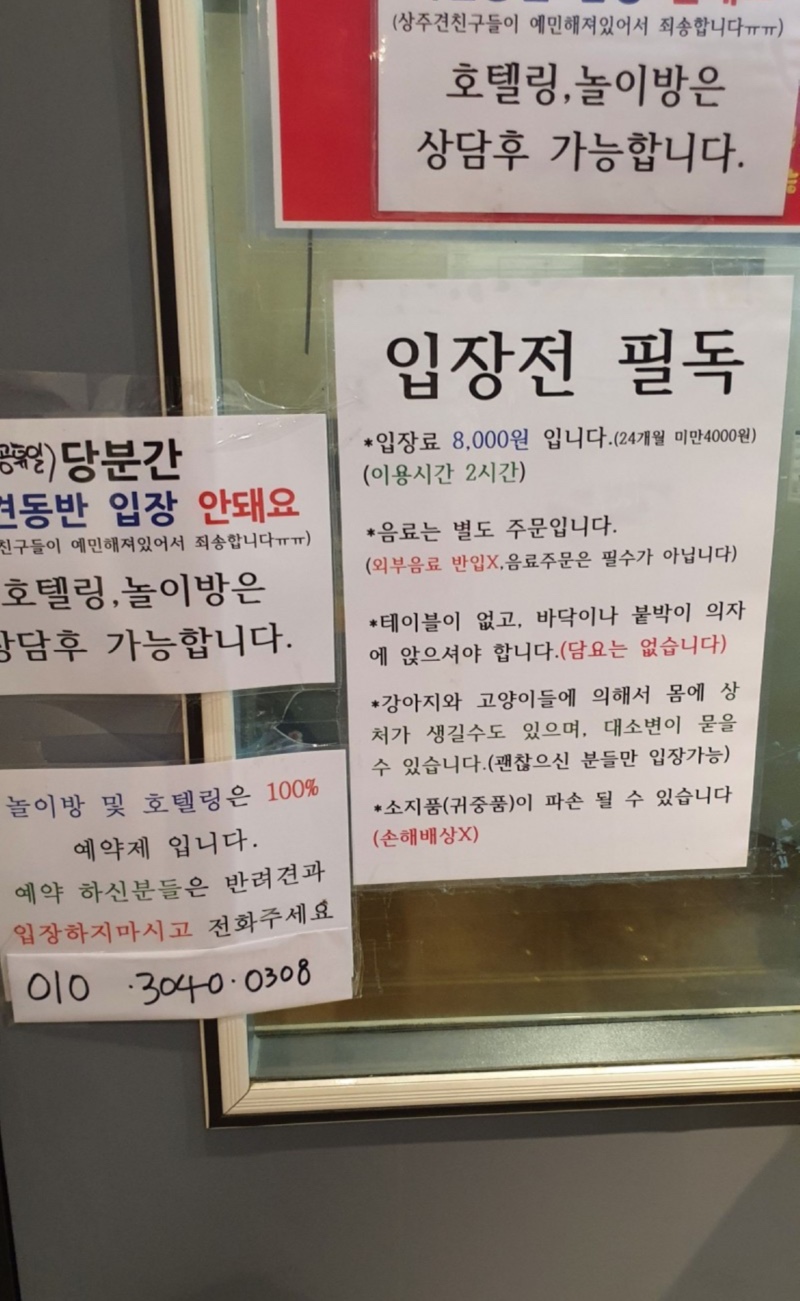 (상주견친구들이 예민해져있어서 죄송합니다ㅠㅠ)
호텔링,놀이방은
상담후 가능합니다.
입장전 필독
*입장료 8,000원 입니다.(24개월 미만4000원)
(이용시간 2시간)
*음료는 별도 주문입니다.
(외부음료 반입X,음료주문은 필수가 아닙니다)
*테이블이 없고, 바닥이나 붙박이 의자
에 앉으셔야 합니다.(담요는 없습니다)
*강아지와 고양이들에 의해서 몸에 상
처가 생길수도 있으며, 대소변이 묻을
수 있습니다.(괜찮으신 분들만 입장가능)
*소지품(귀중품)이 파손 될 수 있습니다
(손해배상X)
공휴일)당분간
견동반 입장 안돼요
친구들이 예민해져있어서 죄송합니다ㅠㅠ)
호텔링,놀이방은
상담후 가능합니다.
놀이방 및 호텔링은 100%
예약제 입니다.
예약 하신분들은 반려견과
입장하지마시고 전화주세요
010 ·3040·0308